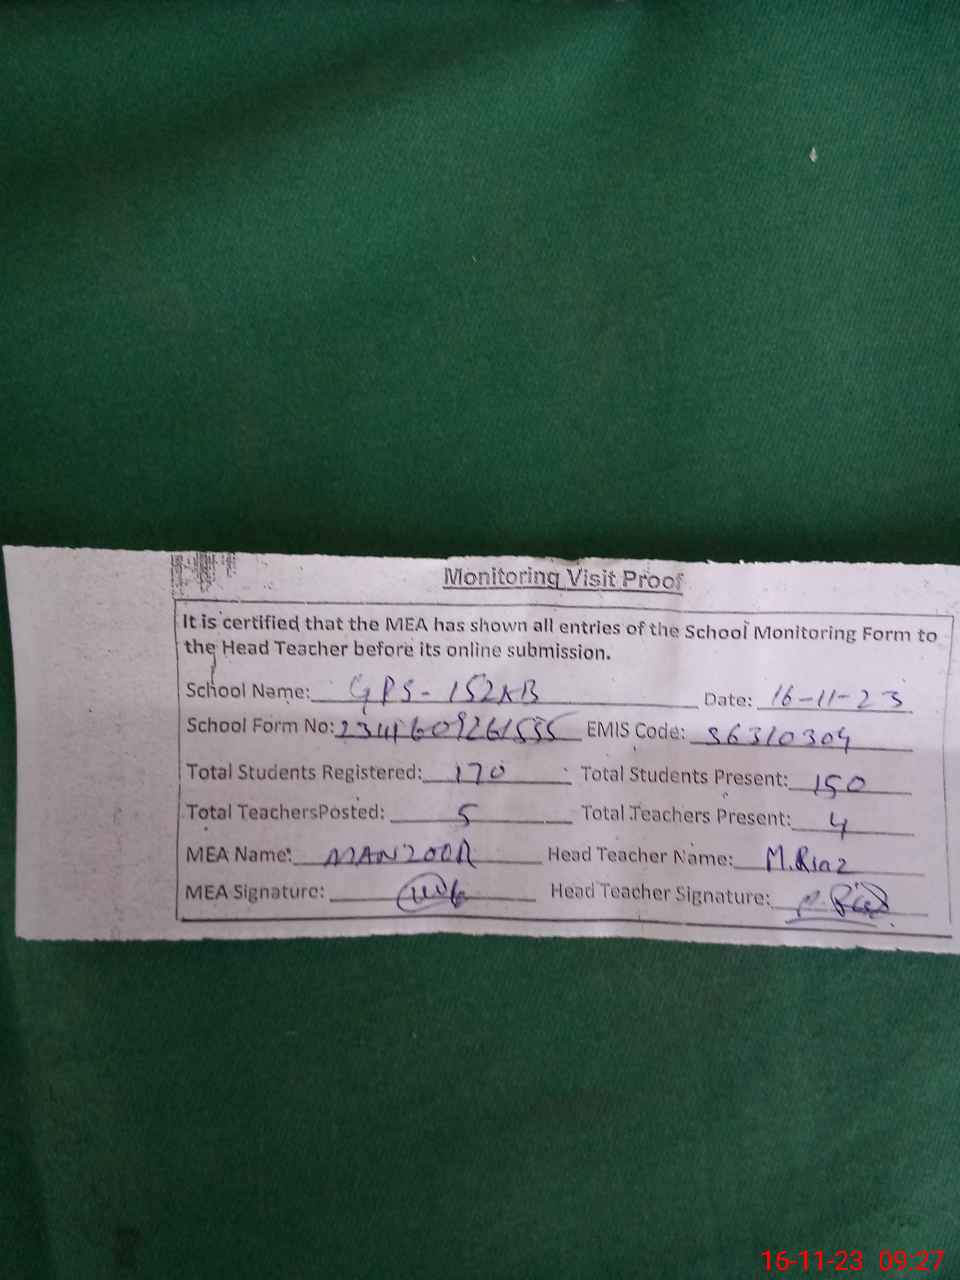 Monitoring Visit Proof
It is certified that the MEA has shown all entries of the School Monitoring Form to
the Head Teacher before its online submission.
School Name: GPS-152KB Date: 16-11-23
School Form No: EMIS Code: 36310304
Total Students Registered: 170 Total Students Present: 150
Total TeachersPosted: 5 Total Teachers Present: 4
MEA Name: MANZOOR Head Teacher Name: M.Riaz
MEA Signature: Head Teacher Signature:
16-11-23 09:27